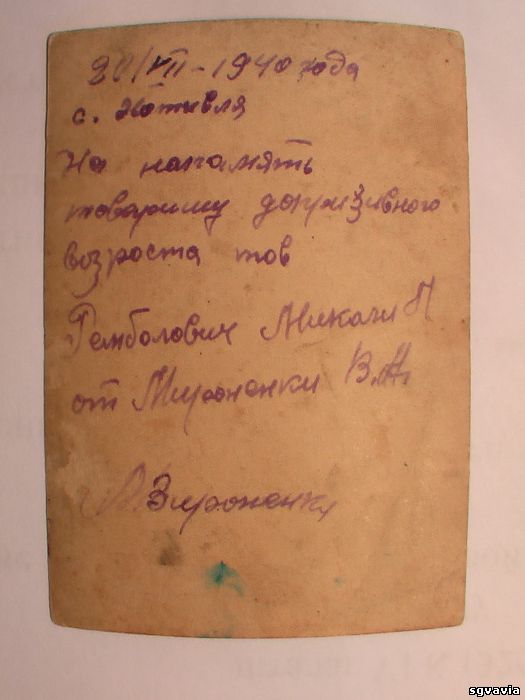 20/VII - 1940 года
с. Хотивля
На напамять
товарищу допризивного
возроста тов
Рембалович Микали П
от Мироненки В.А.
Мироненки
sgvavia